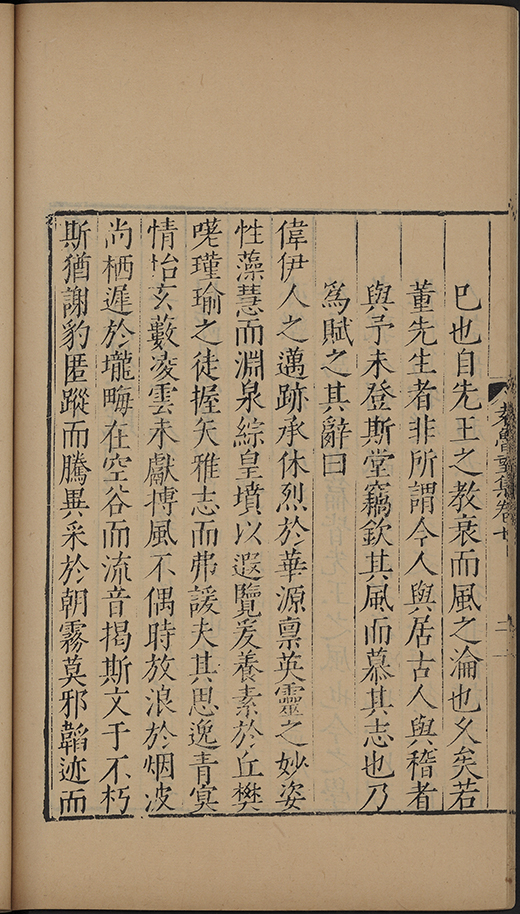 巳也自先王之教衰而風之淪也久矣若
董先生者非所謂今人與居古人與稽者
與予未登斯堂竊欽其風而慕其志也乃
爲賦之其辭曰
偉伊人之邁跡承休烈於華源禀英靈之妙姿
性藻慧而淵泉綜皇墳以遐覽爰養素於丘樊
嘐瑾瑜之徒握矢雅志而弗諼夫其思逸青冥
情怡玄藪凌雲未獻摶風不偶時放浪於烟波
尚栖遲於壠畮在空谷而流音揭斯文于不朽
斯猶謝豹匿蹤而騰異采於朝霧莫邪韜迹而